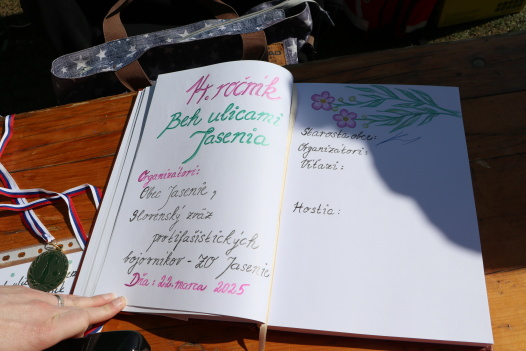 14. ročník
Beh ulicami
Jasenia
Organizátori:
Obec Jasenie,
Slovenský zväz
protifašistických
bojovníkov - ZO Jasenie
Dňa: 22. marca 2025
Starosta obce
Organizátori:
Víťazi:
Hostia: